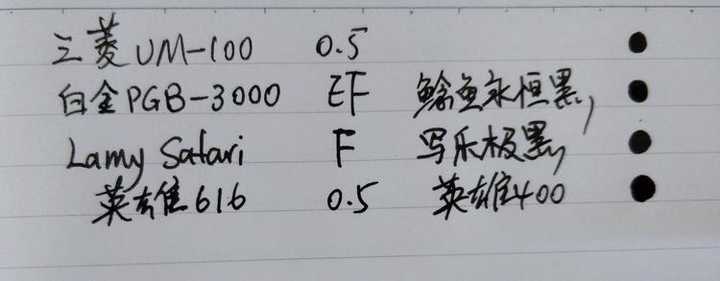 三菱UM-100 0.5
白金PGB-3000 EF 鲶鱼永恒黑,
Lamy Safari F 写乐极黑,
英雄616 0.5 英雄400